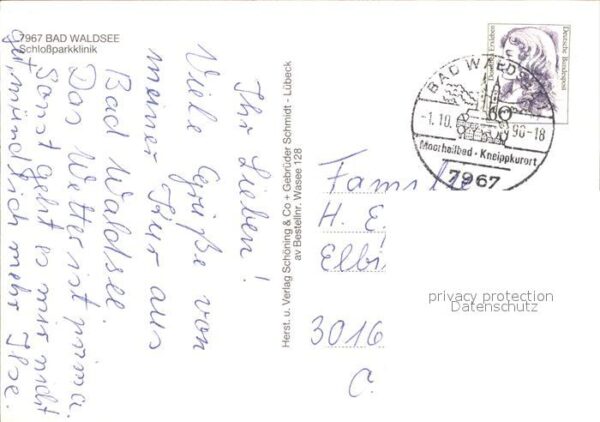 7967 BAD WALDSEE
Schloßparkklinik
Ihr Lieben!
Viele Grüße von
meiner Kur aus
Bad Waldsee.
Das Wetter ist prima.
Sonst geht es mir nicht
gut, mündlich mehr Ilse.
Herst. u. Verlag Schöning & Co + Gebrüder Schmidt - Lübeck
av Bestellnr. Wasee 128
Dorothea Erxleben
Deutsche Bundespost
60
BAD WALDSEE
-1.10. 90-18
Moorheilbad · Kneippkurort
7967
Familie
H. E.
Elbi
3016
privacy protection
Datenschutz